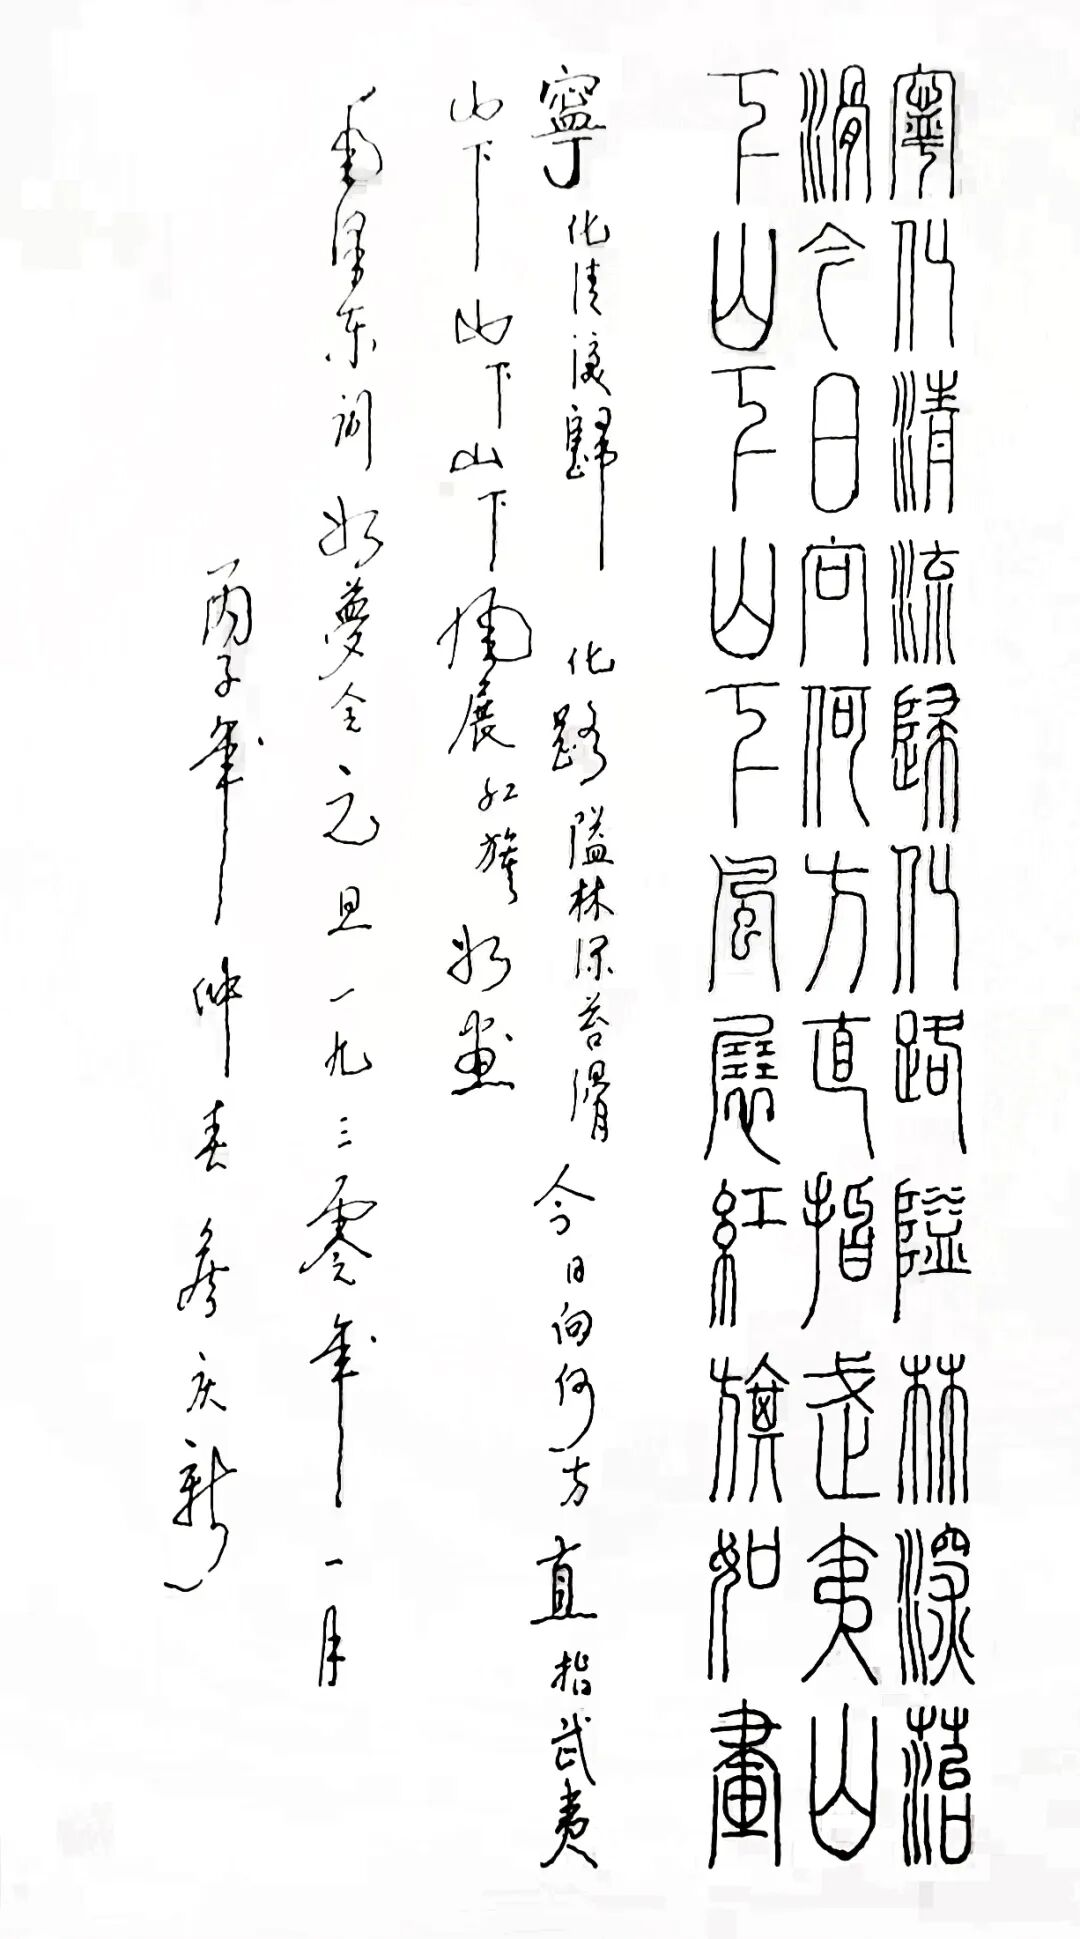 寧化清流歸化路隘林深菭
滑今日向何方直指武夷山
下山下山下風展紅旗如畫
寧化清流歸化路隘林深苔滑今日向何方直指武夷
山下山下山下風展红旗如畫
毛泽东词如夢令元旦一九三零年一月
丙子年仲春庆新